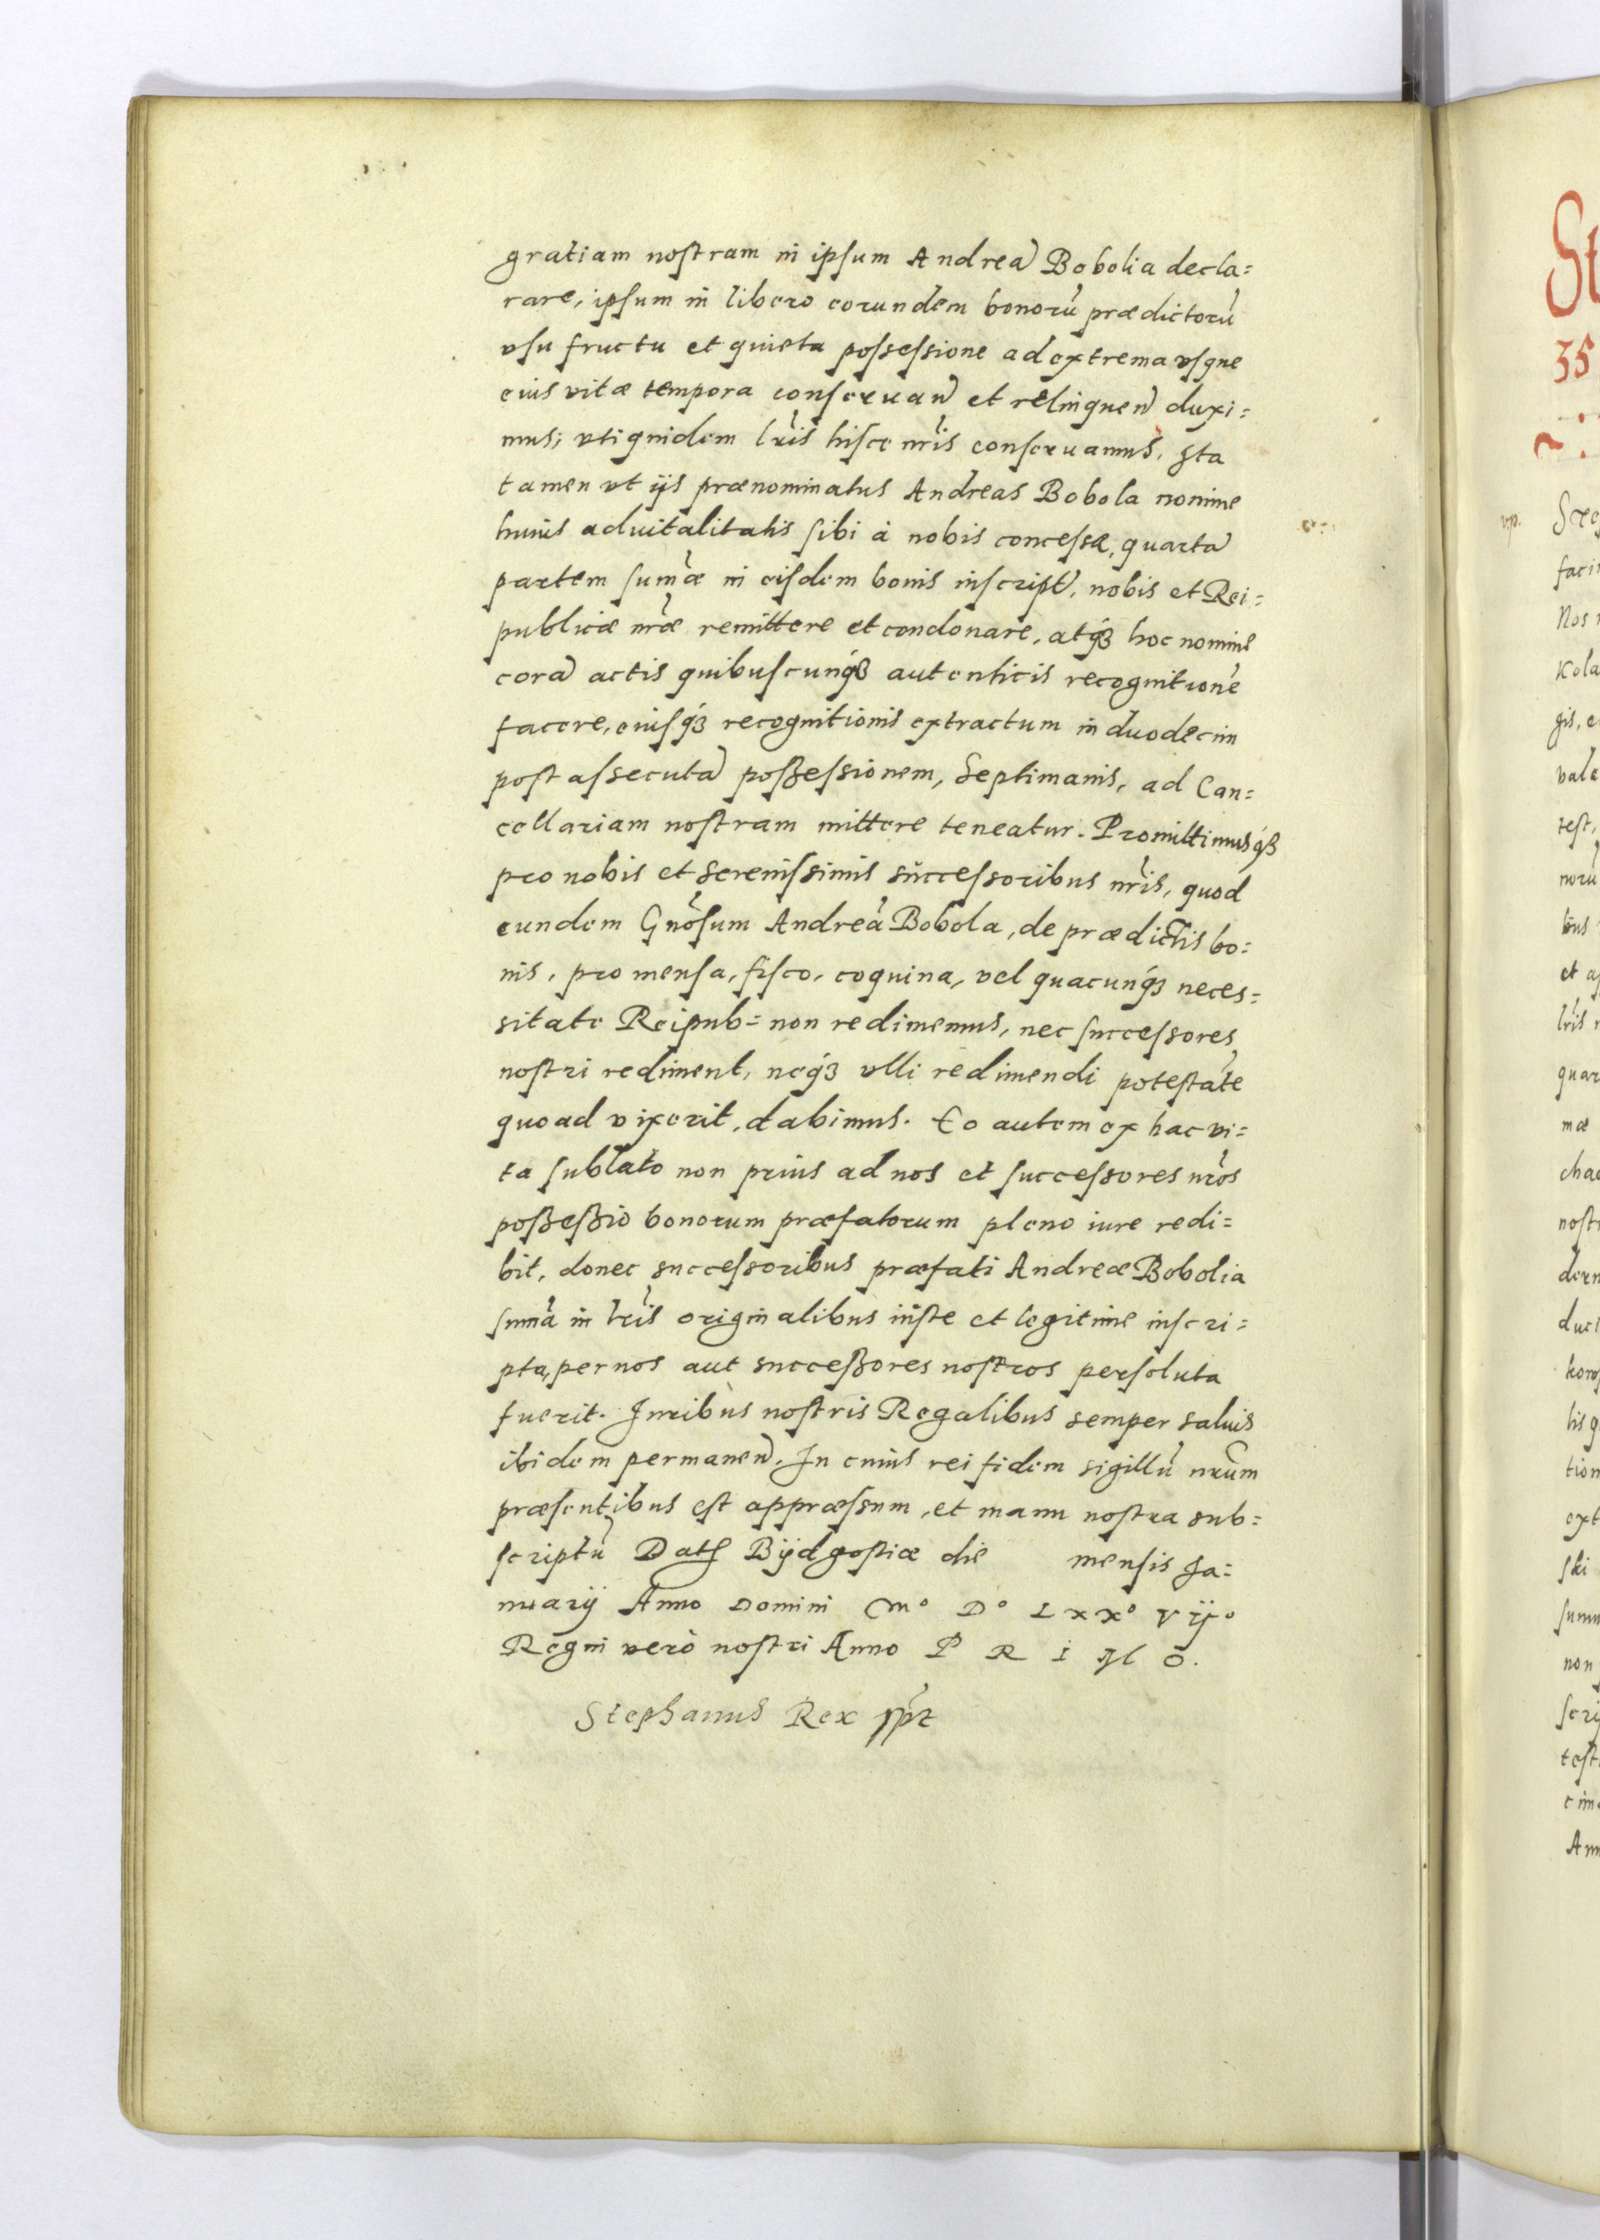 gratiam nostram in ipsum Andreā Bobolia decla=
rare, ipsum in libero eorundem bonorū prædictorū
vsu fructu et quieta possessione ad extrema vsque
eius vitæ tempora conseruan̄ et relinquen̄ duxi=
mus, vti quidem lr̄is hisce nr̄is conseruamus. Ita
tamen vt ijs prænominatus Andreas Bobola nomine
huius aduitalitatis sibi à nobis concessæ, quartā
partem sum̄æ in eisdem bonis inscript̄, nobis et Rei=
publicæ nr̄æ remittere et condonare, atq́ꝫ hoc nomine
corā actis quibuscunq́ꝫ autenticis recognitionē
facere, eiusq́ꝫ recognitionis extractum in duodecim
post assecutā poßessionem, Septimanis, ad Can=
cellariam nostram mittere teneatur. Promittimusq́ꝫ
pro nobis et Serenissimis successoribus nr̄is, quod
eundem Gn̄osum Andreā Bobola, de prædictis bo=
nis, pro mensa, fisco, coquina, vel quacunq́ꝫ neces=
sitate Reipub= non redimemus, nec successores
nostri rediment, neq́ꝫ vlli redimendi potestatē
quoad vixerit, dabimus. Eo autem ex hac vi=
ta sublato non prius ad nos et successores nr̄os
poßeßio bonorum præfatorum pleno iure redi=
bit, donec successoribus præfati Andreæ Bobolia
sum̄a in lr̄is originalibus iuste et legitime inscri=
pta, per nos aut succeßores nostros persoluta
fuerit. Iuribus nostris Regalibus semper saluis
ibidem permanen̄. In cuius rei fidem sigillū nr̄um
præsentibus est appræssum, et manu nostra sub=
scriptū Datꝭ Bijdgostiæ die mensis Ja=
nuarij Anno Domini Mº Dº LXXº Vijº
Regni verò nostri Anno P R I M O.
Stephanus Rex sspt
St
35
vp.
facin
Nos
Kola
gis, e
vale
test,
norū
et
lr̄is
quar
mæ
chac
nostr
tion
ext
ski
sum
non
scri
test
Ann